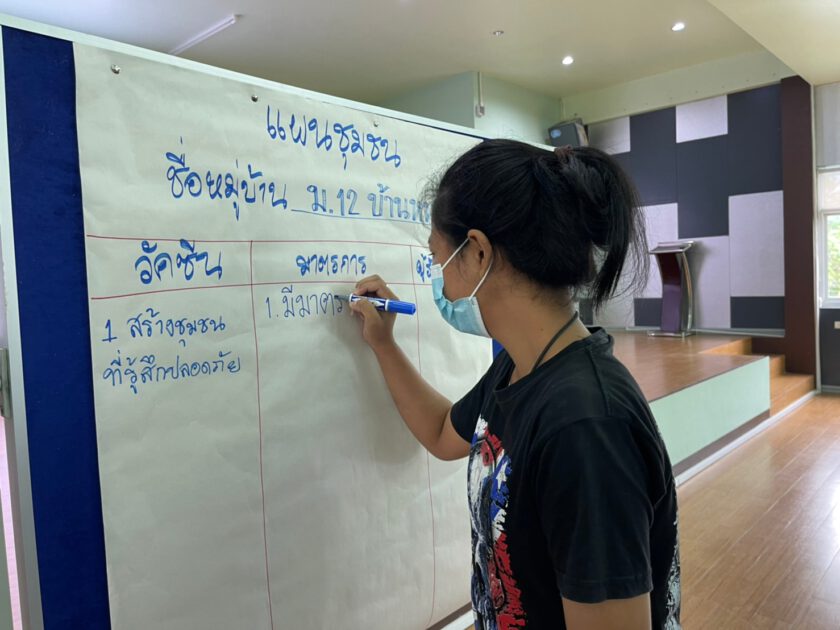 แผนชุมชน
ชื่อหมู่บ้าน ม.12
วัคซีน
มาตรการ
1 สร้างชุมชน
ที่รู้สึกปลอดภัย
1. มีมาตร